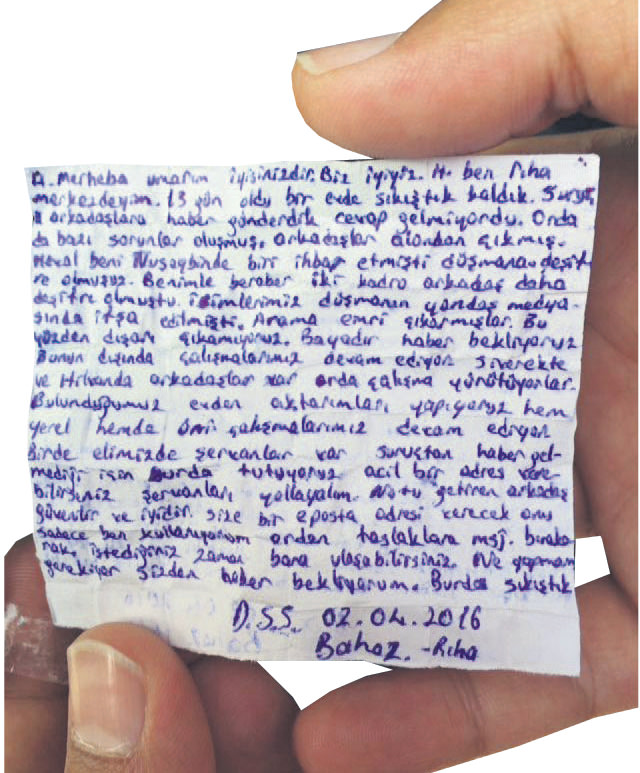 D. Merheba umarım iyisinizdir. Biz iyiyiz. H. ben Riha
merkezdeyim. 13 gün oldu bir evde sıkıştık kaldık. Suruç
arkadaşlara haber gönderdik cevap gelmiyordu. Orda
da bazı sorunlar oluşmuş, arkadaşlar alandan çıkmış.
Heval beni Nusaybinde biri ihbar etmişti düşmana. deşift
re olmuşuz. Benimle beraber iki kadro arkadaş daha
deşifre olmuştu. isimlerimiz düşmanın yandaş medya-
sında ifşa edilmişti. Arama emri çıkarmışlar. Bu
yüzden dışarı çıkamıyoruz. Bayadır haber bekliyoruz
Bunun dışında çalışmalarımız devam ediyor siverekte
ve Hilvanda arkadaşlar var orda çalışma yürütüyorlar.
Bulunduğumuz evden aktarımları yapıyoruz hem
yerel hemde çalışmalarımız devam ediyor
Birde elimizde şervanlar var suruçtan haber gel-
mediği için burda tutuyoruz acil bir adres vere-
bilirseniz şervanları yollayalım. Notu getiren arkadaş
güvenilir ve iyidir. size bir eposta adresi verecek onu
sadece ben kullanıyorum ordan taslaklara msj. bıraka
rak, istediğiniz zaman bana ulaşabilirsiniz. Ne yapmam
gerekiyor sizden haber bekliyorum. Burda sıkıştık
D.S.S. 02.04.2016
Bahoz. -Riha